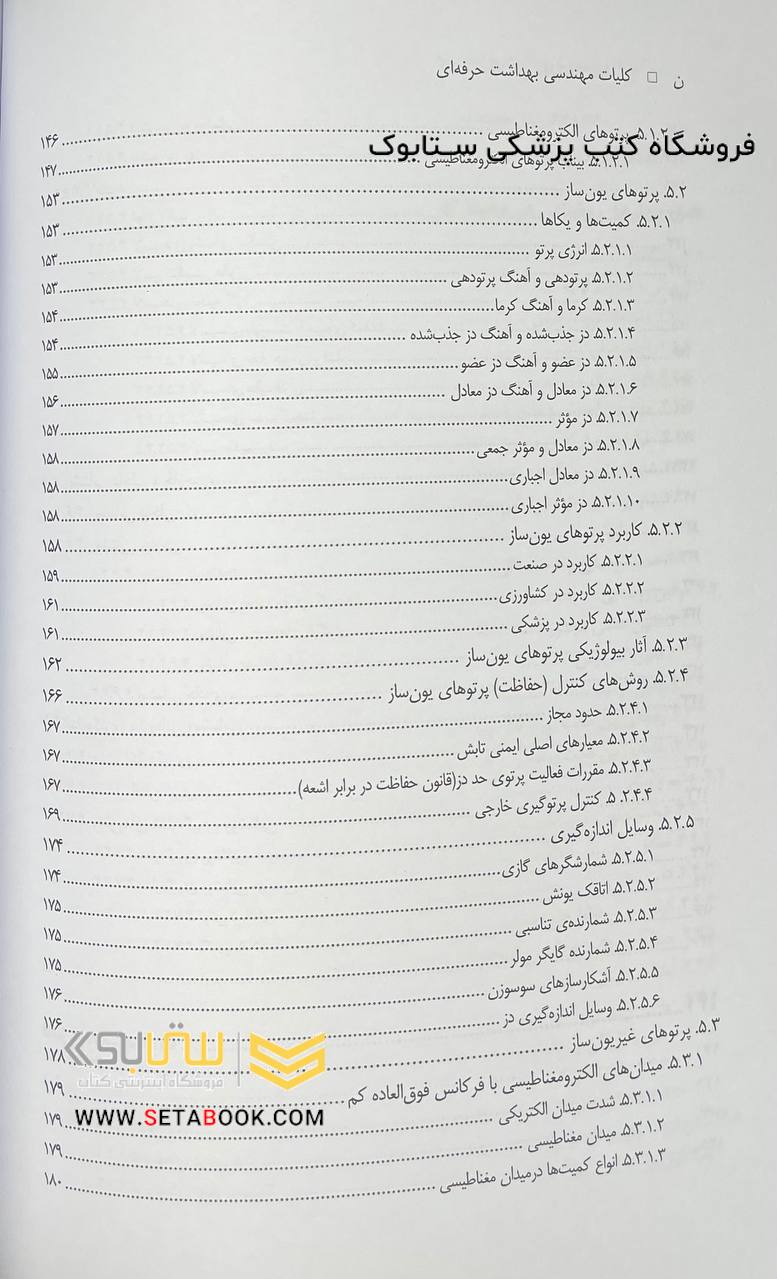 ن □ کلیات مهندسی بهداشت حرفه‌ای
۵.۱.۲. پرتوهای الکترومغناطیسی ۱۴۶
فروشگاه کتب پزشکی ستابوک
۵.۱.۲.۱. بیناب پرتوهای الکترومغناطیسی ۱۴۷
۵.۲. پرتوهای یون‌ساز ۱۵۳
۵.۲.۱. کمیت‌ها و یکاها ۱۵۳
۵.۲.۱.۱. انرژی پرتو ۱۵۳
۵.۲.۱.۲. پرتودهی و آهنگ پرتودهی ۱۵۳
۵.۲.۱.۳. کرما و آهنگ کرما ۱۵۴
۵.۲.۱.۴. دز جذب‌شده و آهنگ دز جذب‌شده ۱۵۴
۵.۲.۱.۵. دز عضو و آهنگ دز عضو ۱۵۵
۵.۲.۱.۶. دز معادل و آهنگ دز معادل ۱۵۶
۵.۲.۱.۷. دز مؤثر ۱۵۷
۵.۲.۱.۸. دز معادل و مؤثر جمعی ۱۵۸
۵.۲.۱.۹. دز معادل اجباری ۱۵۸
۵.۲.۱.۱۰. دز مؤثر اجباری ۱۵۸
۵.۲.۲. کاربرد پرتوهای یون‌ساز ۱۵۸
۵.۲.۲.۱. کاربرد در صنعت ۱۵۹
۵.۲.۲.۲. کاربرد در کشاورزی ۱۶۱
۵.۲.۲.۳. کاربرد در پزشکی ۱۶۱
۵.۲.۳. آثار بیولوژیکی پرتوهای یون‌ساز ۱۶۲
۵.۲.۴. روش‌های کنترل (حفاظت) پرتوهای یون‌ساز ۱۶۶
۵.۲.۴.۱. حدود مجاز ۱۶۷
۵.۲.۴.۲. معیارهای اصلی ایمنی تابش ۱۶۷
۵.۲.۴.۳. مقررات فعالیت پرتوی حد دز(قانون حفاظت در برابر اشعه) ۱۶۷
۵.۲.۴.۴. کنترل پرتوگیری خارجی ۱۶۹
۵.۲.۵. وسایل اندازه‌گیری ۱۷۴
۵.۲.۵.۱. شمارشگرهای گازی ۱۷۴
۵.۲.۵.۲. اتاقک یونش ۱۷۵
۵.۲.۵.۳. شمارنده‌ی تناسبی ۱۷۵
۵.۲.۵.۴. شمارنده گایگر مولر ۱۷۵
۵.۲.۵.۵. آشکارسازهای سوسوزن ۱۷۶
۵.۲.۵.۶. وسایل اندازه‌گیری دز ۱۷۶
۵.۳. پرتوهای غیریون‌ساز ۱۷۸
ستابوک
فروشگاه اینترنتی کتاب
۵.۳.۱. میدان‌های الکترومغناطیسی با فرکانس فوق‌العاده کم ۱۷۹
WWW.SETABOOK.COM
۵.۳.۱.۱. شدت میدان الکتریکی ۱۷۹
۵.۳.۱.۲. میدان مغناطیسی ۱۷۹
۵.۳.۱.۳. انواع کمیت‌ها درمیدان مغناطیسی ۱۸۰